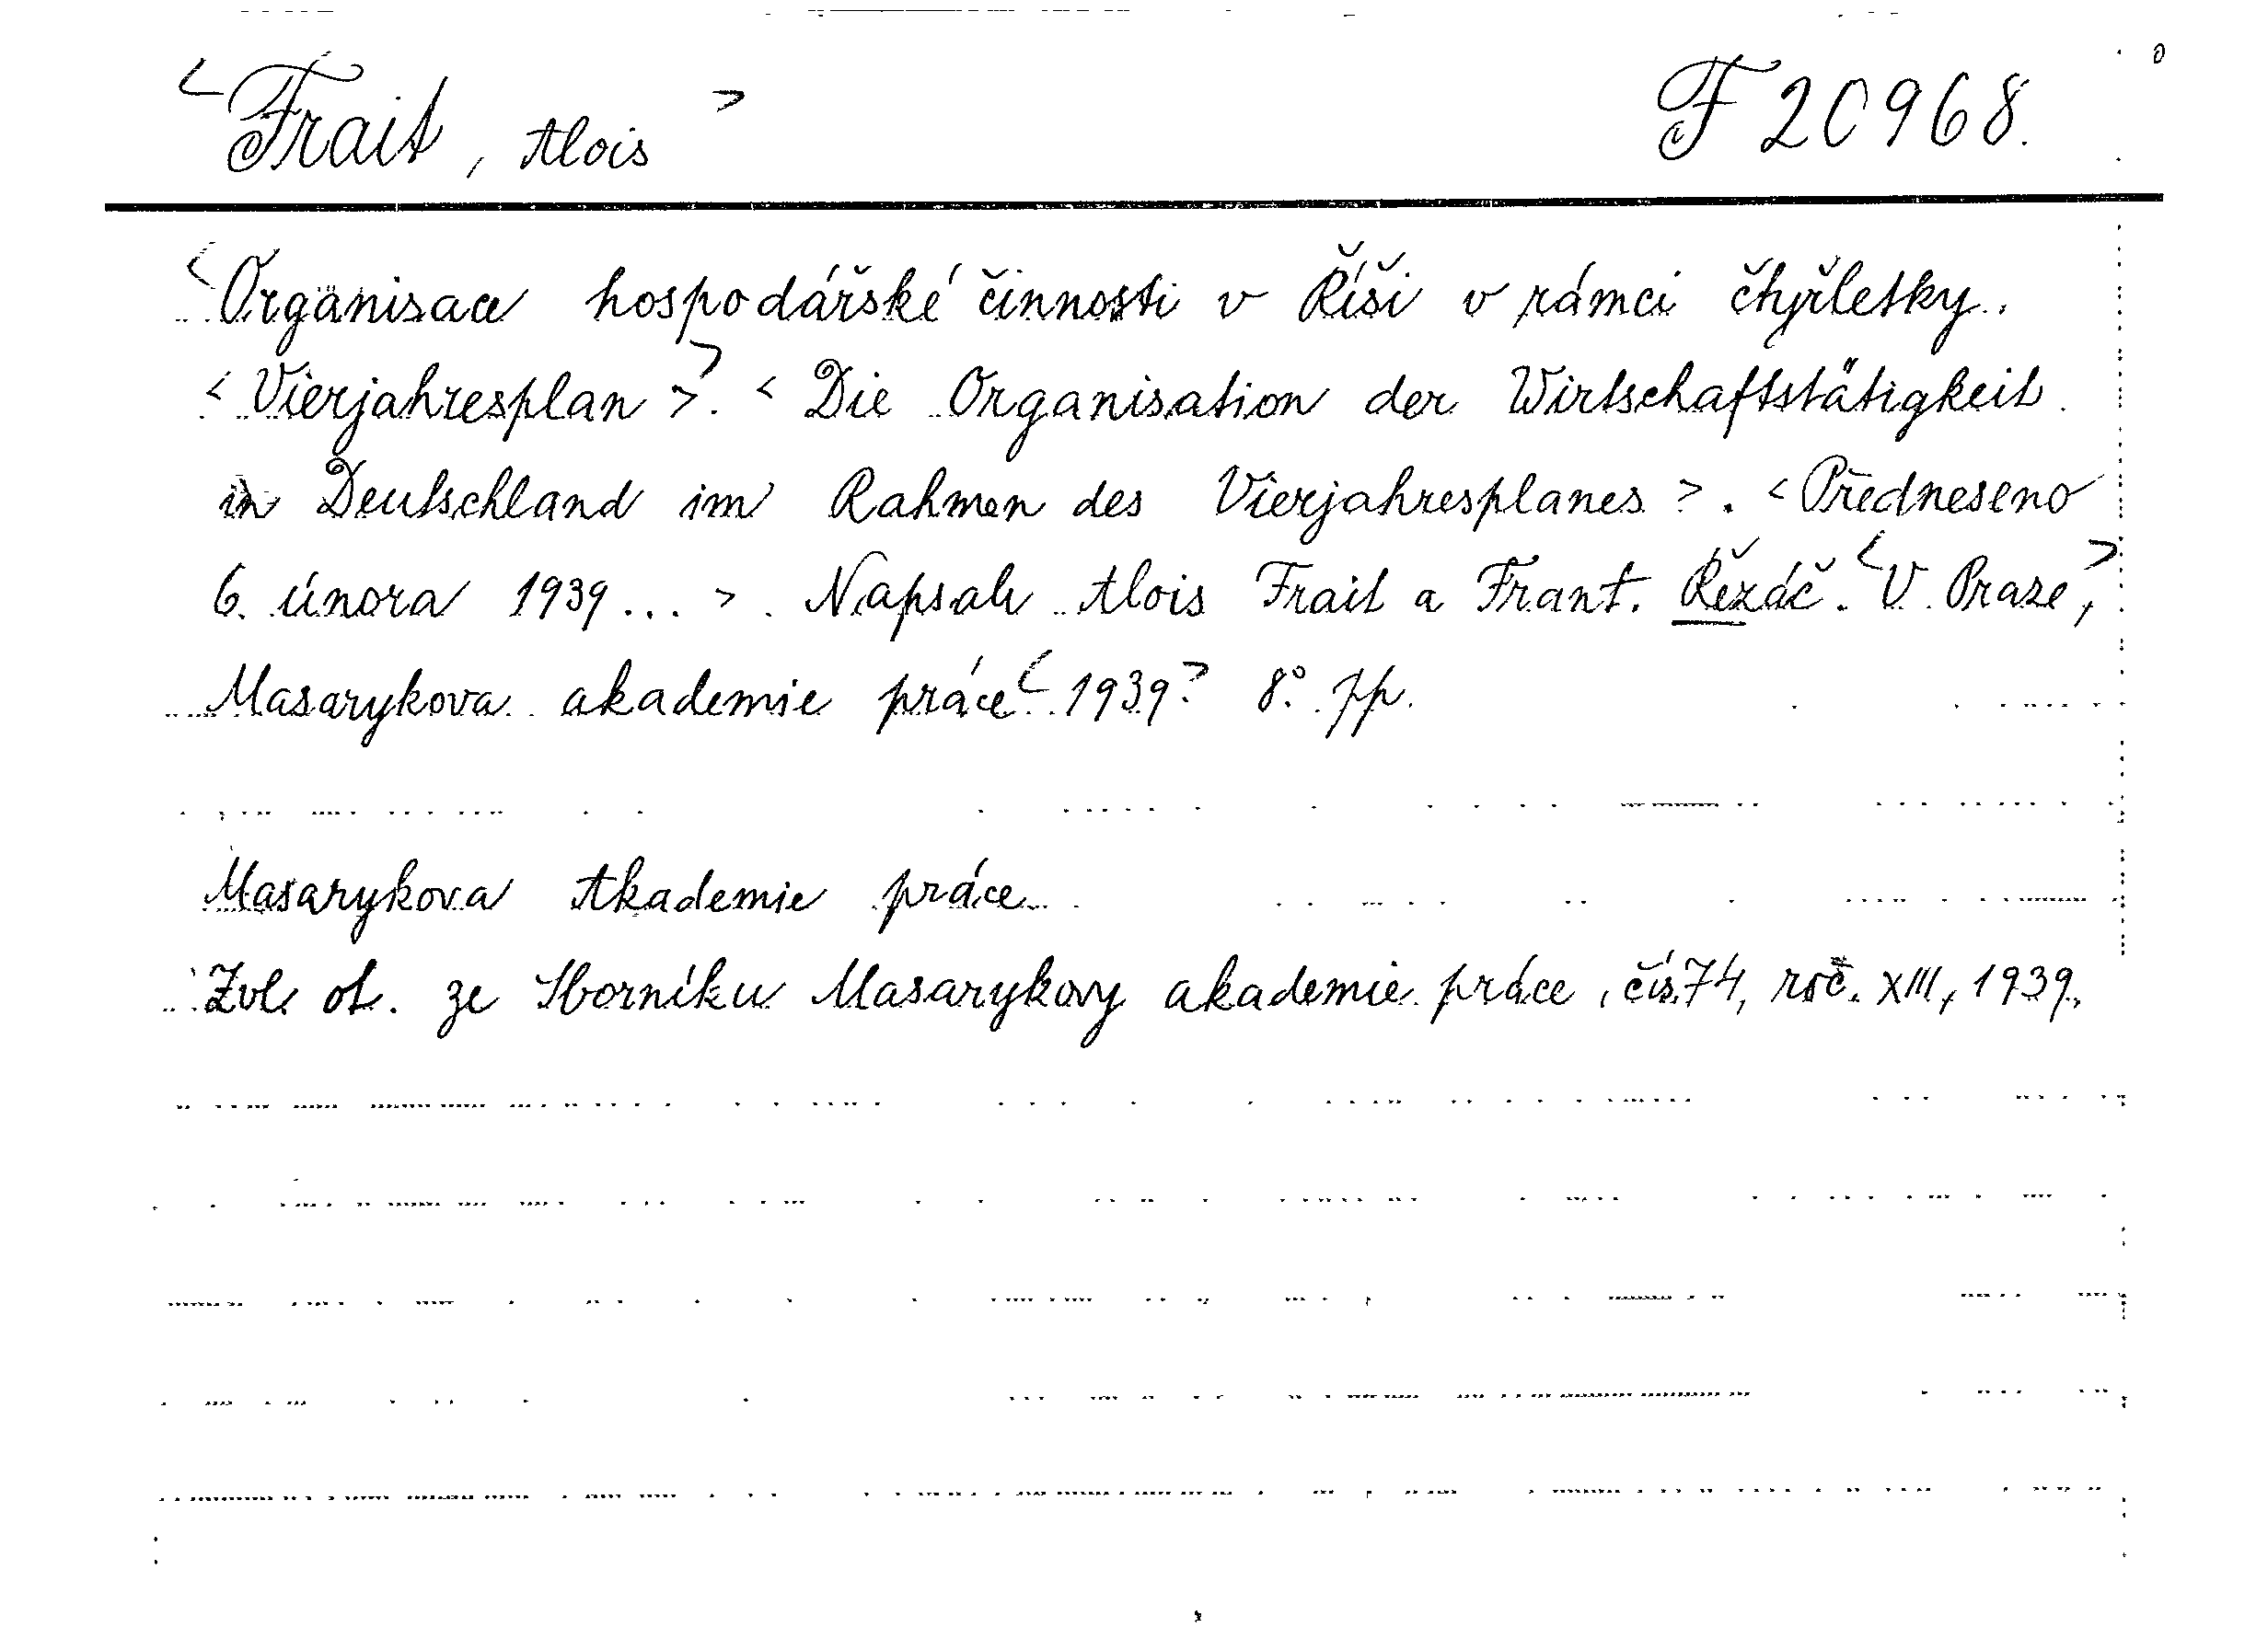 <Frait, Alois> F 20968.
<Organisace hospodářské činnosti v Říši v rámci čtyřletky.
<Vierjahresplan>>. <Die Organisation der Wirtschaftstätigkeit
in Deutschland im Rahmen des Vierjahresplanes>. <Předneseno
6. února 1939...>. Napsali Alois Frait a Frant. Řezáč. <V Praze,>
Masarykova akademie práce <1939> 8°.
Masarykova Akademie práce
Zvl. ot. ze Sborníku Masarykovy akademie práce, čís. 74, roč. XIII, 1939.